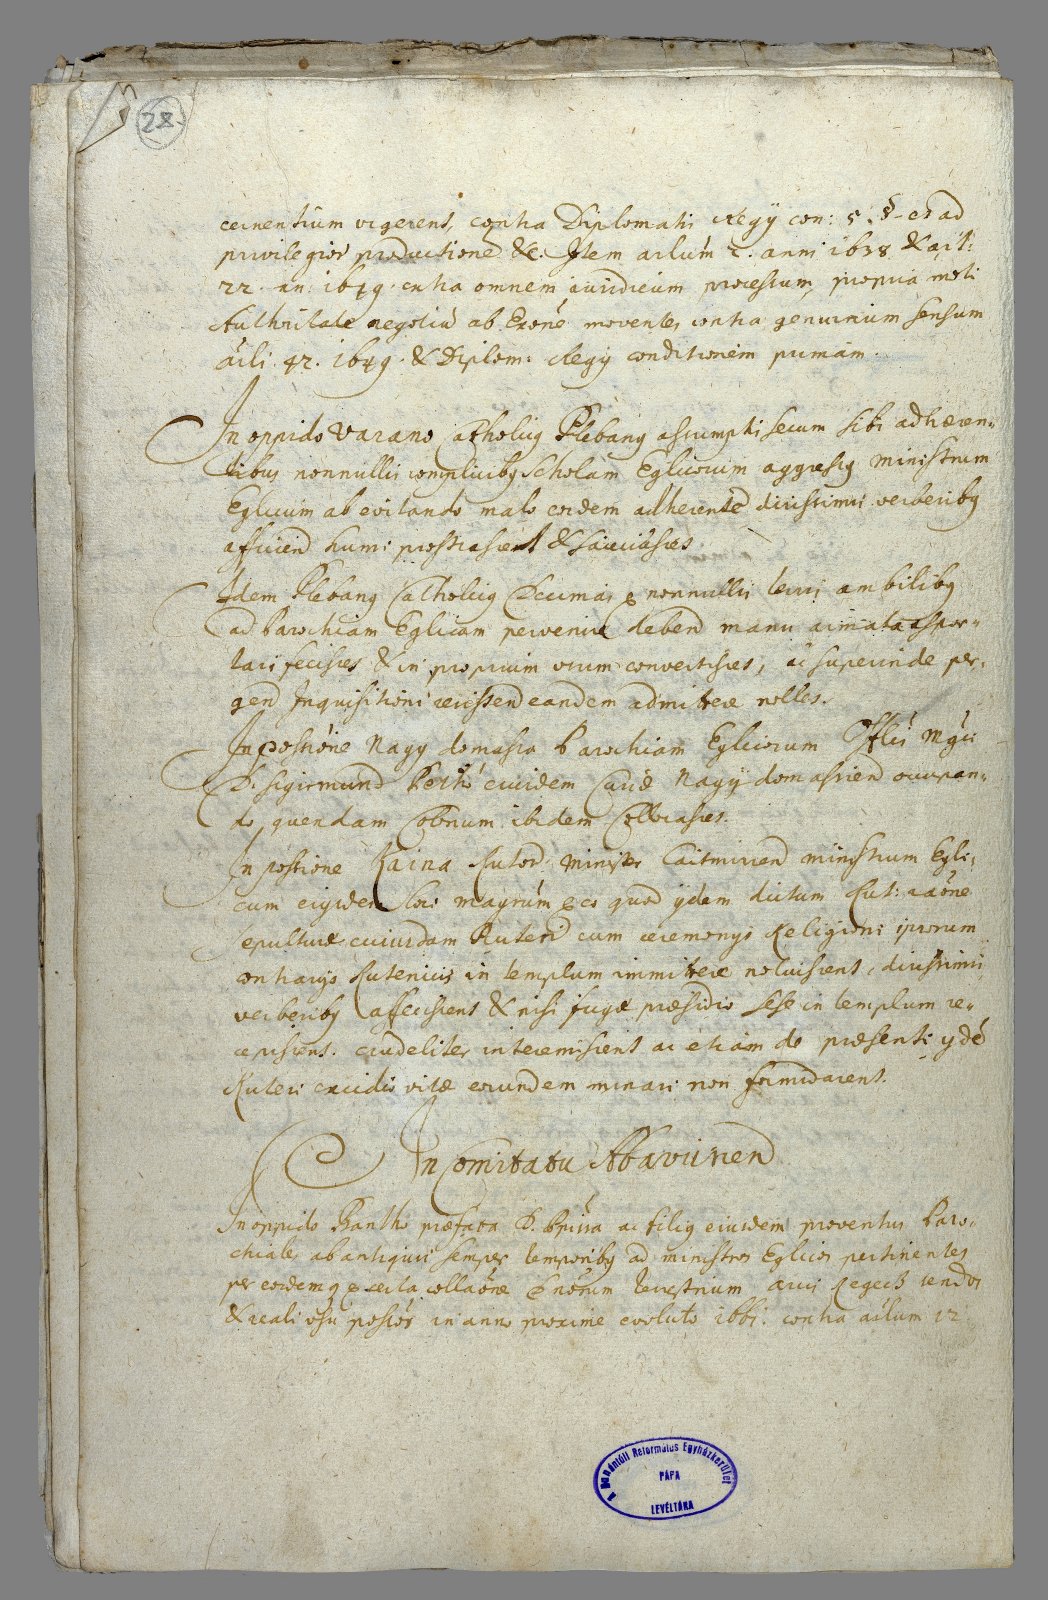 28.
cernentium urgerent, contra Diplomatis Regÿ con: 5. §. et ad
privilegior productione &c. Item arlum 2. anni 1638 & art:
22. an: 1649. cntra omnem iuridicum processum, propria moti
Authoritate negotiū ab Exōne moventes contra genuinum sensum
arli. 42. 1649. & Diplom: Regÿ conditionem primam.
In oppido Varano Catholicg Plebang assumptis secum sibi adhæren:
tibus nonnullis complicibg Scholam Eglicorum aggressg ministrum
Eglicum ab evitando malo eidem adherente dirissimis verberibg
afficiend humi prostrasset & sauciasset.
Idem Plebang Catholicg Decimas e nonnullis terris ambilibg
ad Parochiam Eglicam pervenire debend manu armata aspor-
tari fecisset & in proprium usum convertisset, ac superinde per-
gend Inquisitioni cessend eandem admittere nollet.
In possione Nagy domasra Parochiam Eglicorum Offlis Mgci
D. Sigismund Pethō eiusdem Caue Nagÿ domassiend occupan-
do, quendam Colonum ibidem Collocasset.
In possione Kaina Rutord. Minister Caitmiriend ministrum Egli:
cum eiusdem loci magrúm ex eo quod ÿdem dictum Rut: raōne
sepulturæ cuiusdam Ruteni cum ceremonys Religioni ipsorum
contrarys Rutenicis in templum immittere noluissent, dirissimis
verberibg affecissent & nisi fugæ præsidio sese in templum re-
cepissent. crudeliter interemissent ac etiam de præsenti ydē
Ruteni excidio vitæ eorundem minari non formidarent.
In Comitatu Abaviviend
In oppido Szanthó præfata D. Bpissa ac filig eiusdem proventus Paro-
chiales ab antiquis semper temporibg ad ministros Eglicos pertinentes
per eosdemq ex certa collaōne Dnōrum terrestrium arcis Regecz tendos
& reali usu possos in anno proxime evoluto 1661. contra arlum 12
A Dunántúli Református Egyházkerület
PÁPA
LEVÉLTÁRA